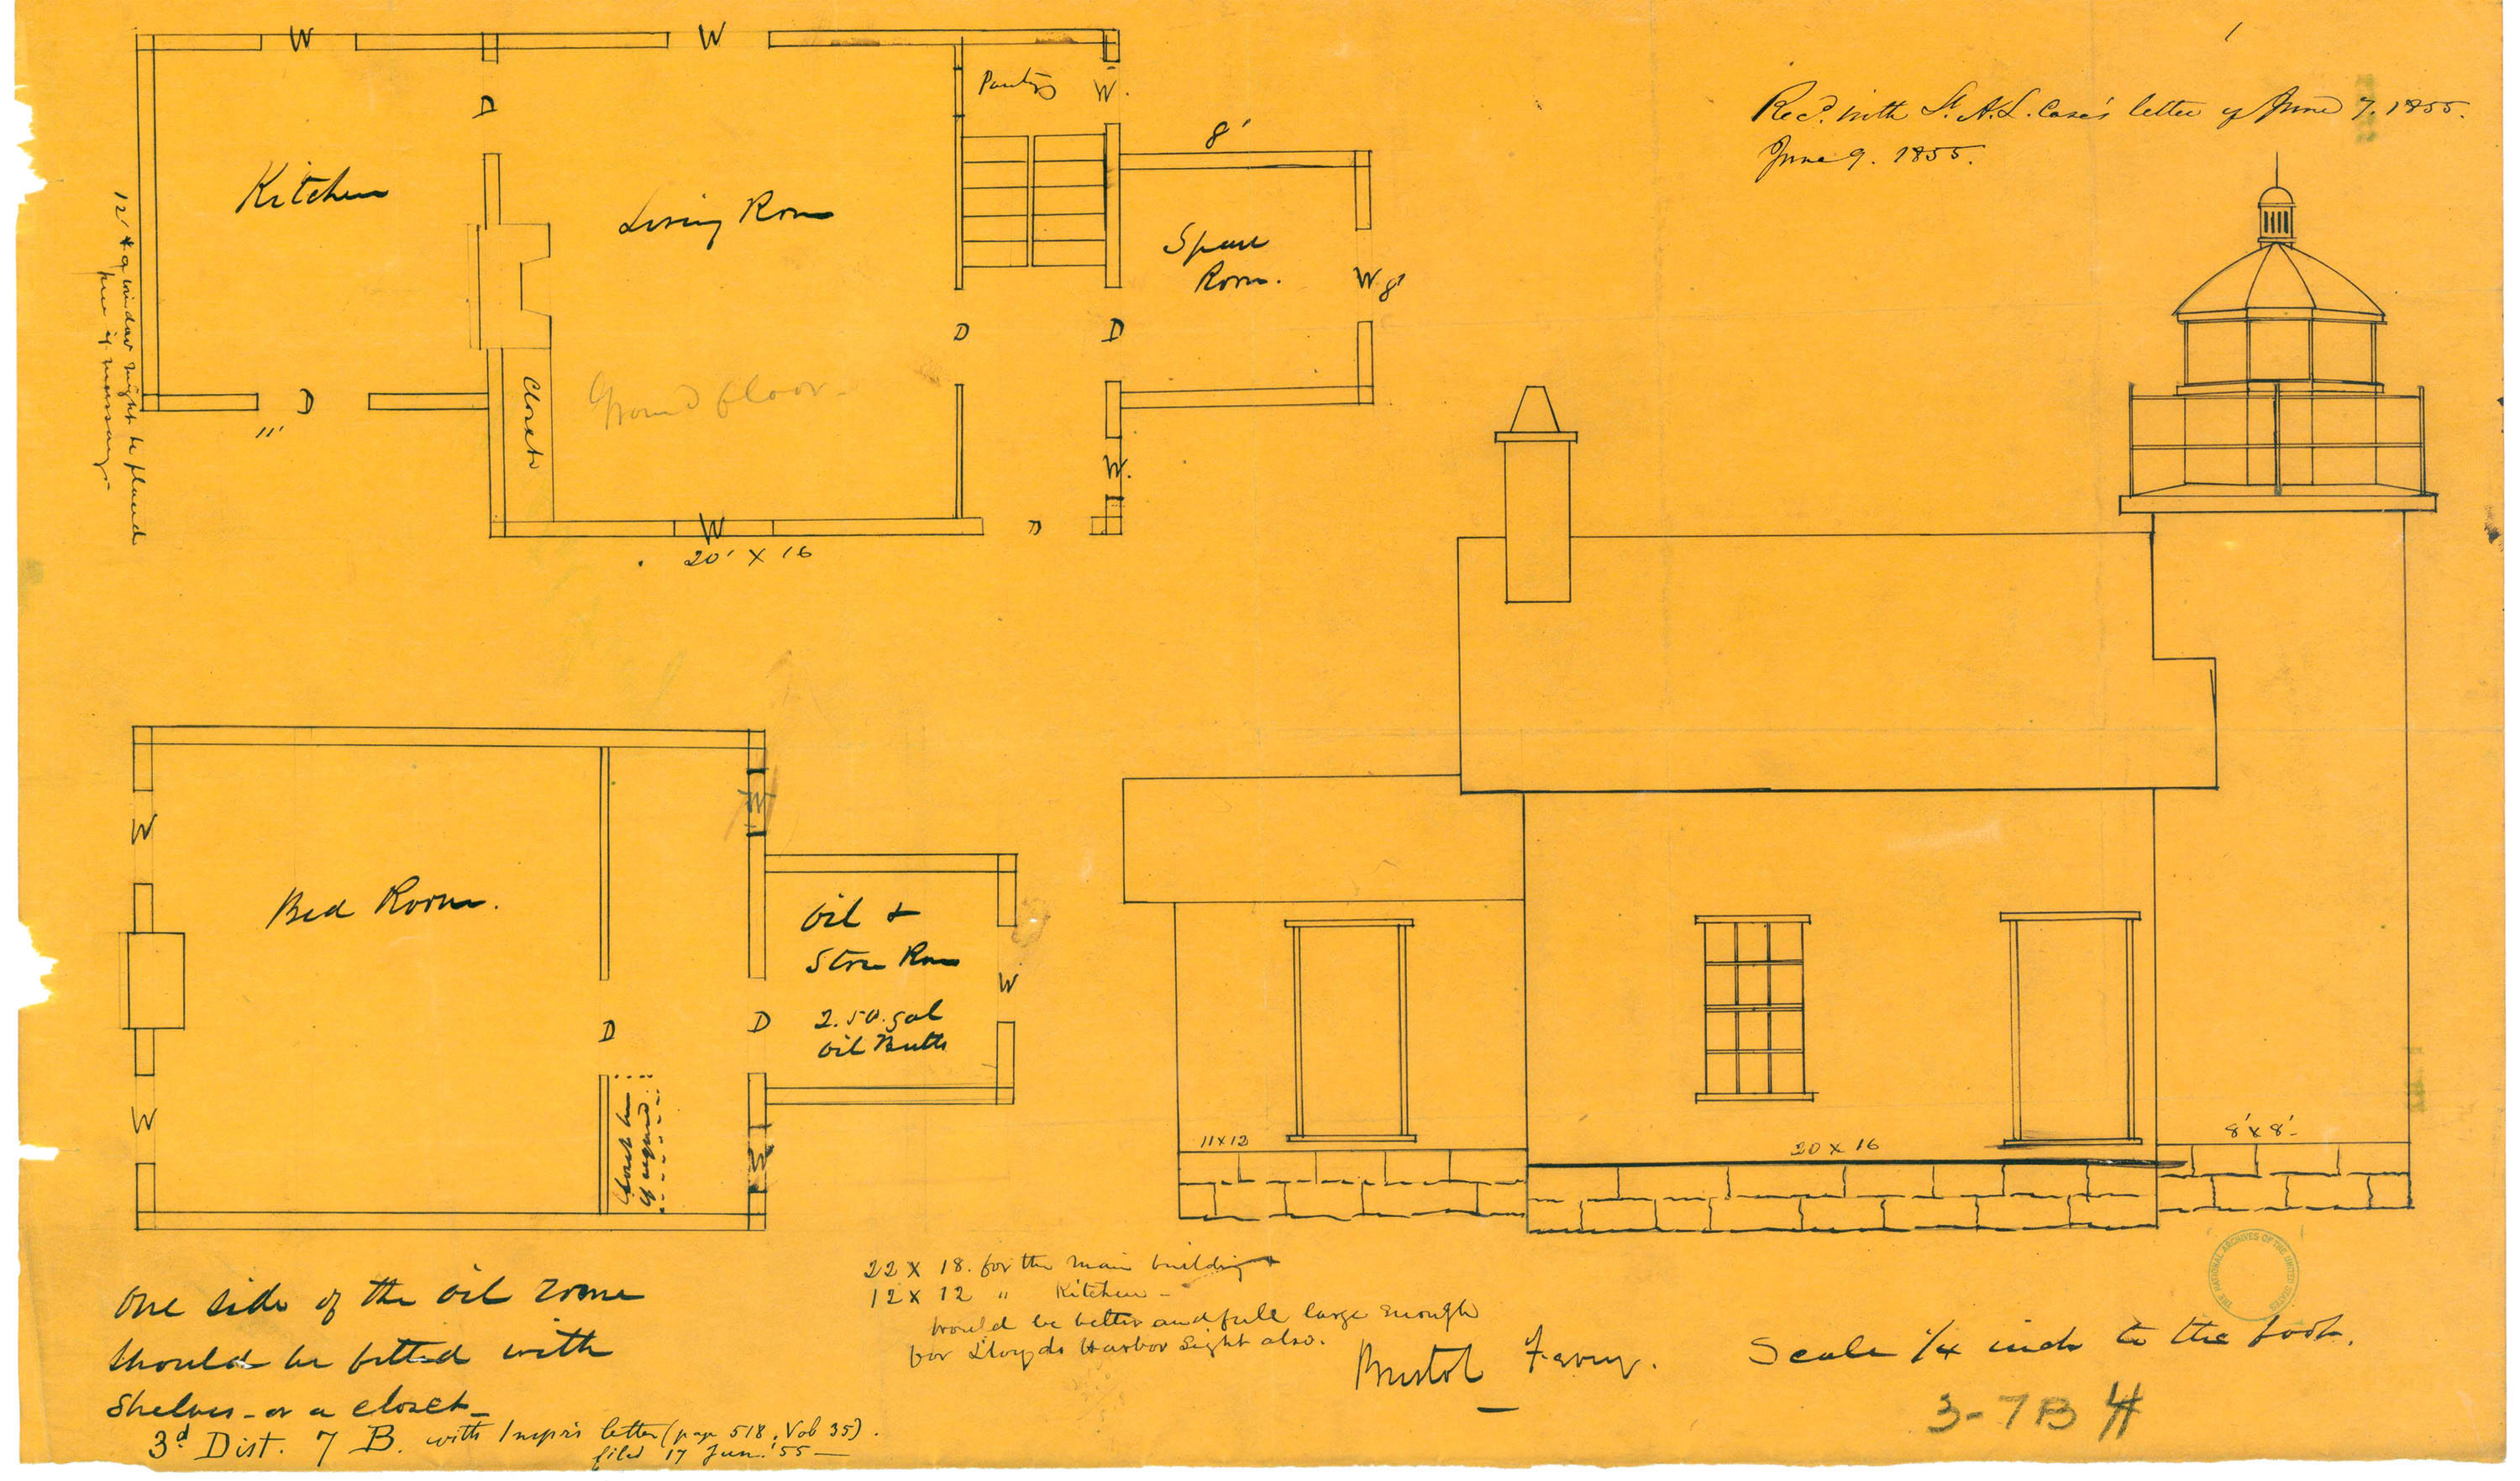 1
Rec'd. with Lt. A. L. Case's letter of June 7. 1855.
June 9. 1855.
W
W
Pantry
W.
D
8'
Kitchen
Living Room
Spare
Room.
W 8'
D
D
D
11'
Closets
Ground floor -
W.
W
D
20' X 16
12' & a window might be placed
here if necessary -
W
W
Bed Room.
Oil &
Store Room
W
D
D
2. 50. gal
oil Butts
W
Closet here
if required.
W
11 X 12
20 X 16
8' X 8'-
THE NATIONAL ARCHIVES OF THE UNITED STATES
One side of the oil room
should be fitted with
shelves - or a closet -
3d Dist. 7 B. with Insp's letter (page 518, Vol 35).
filed 17 Jun. '55 -
22 X 18. for the main building &
12 X 12 " Kitchen -
would be better and full large enough
for Lloyds Harbor Light also.
Bristol Ferry.
Scale 1/4 inch to the foot.
3-7B